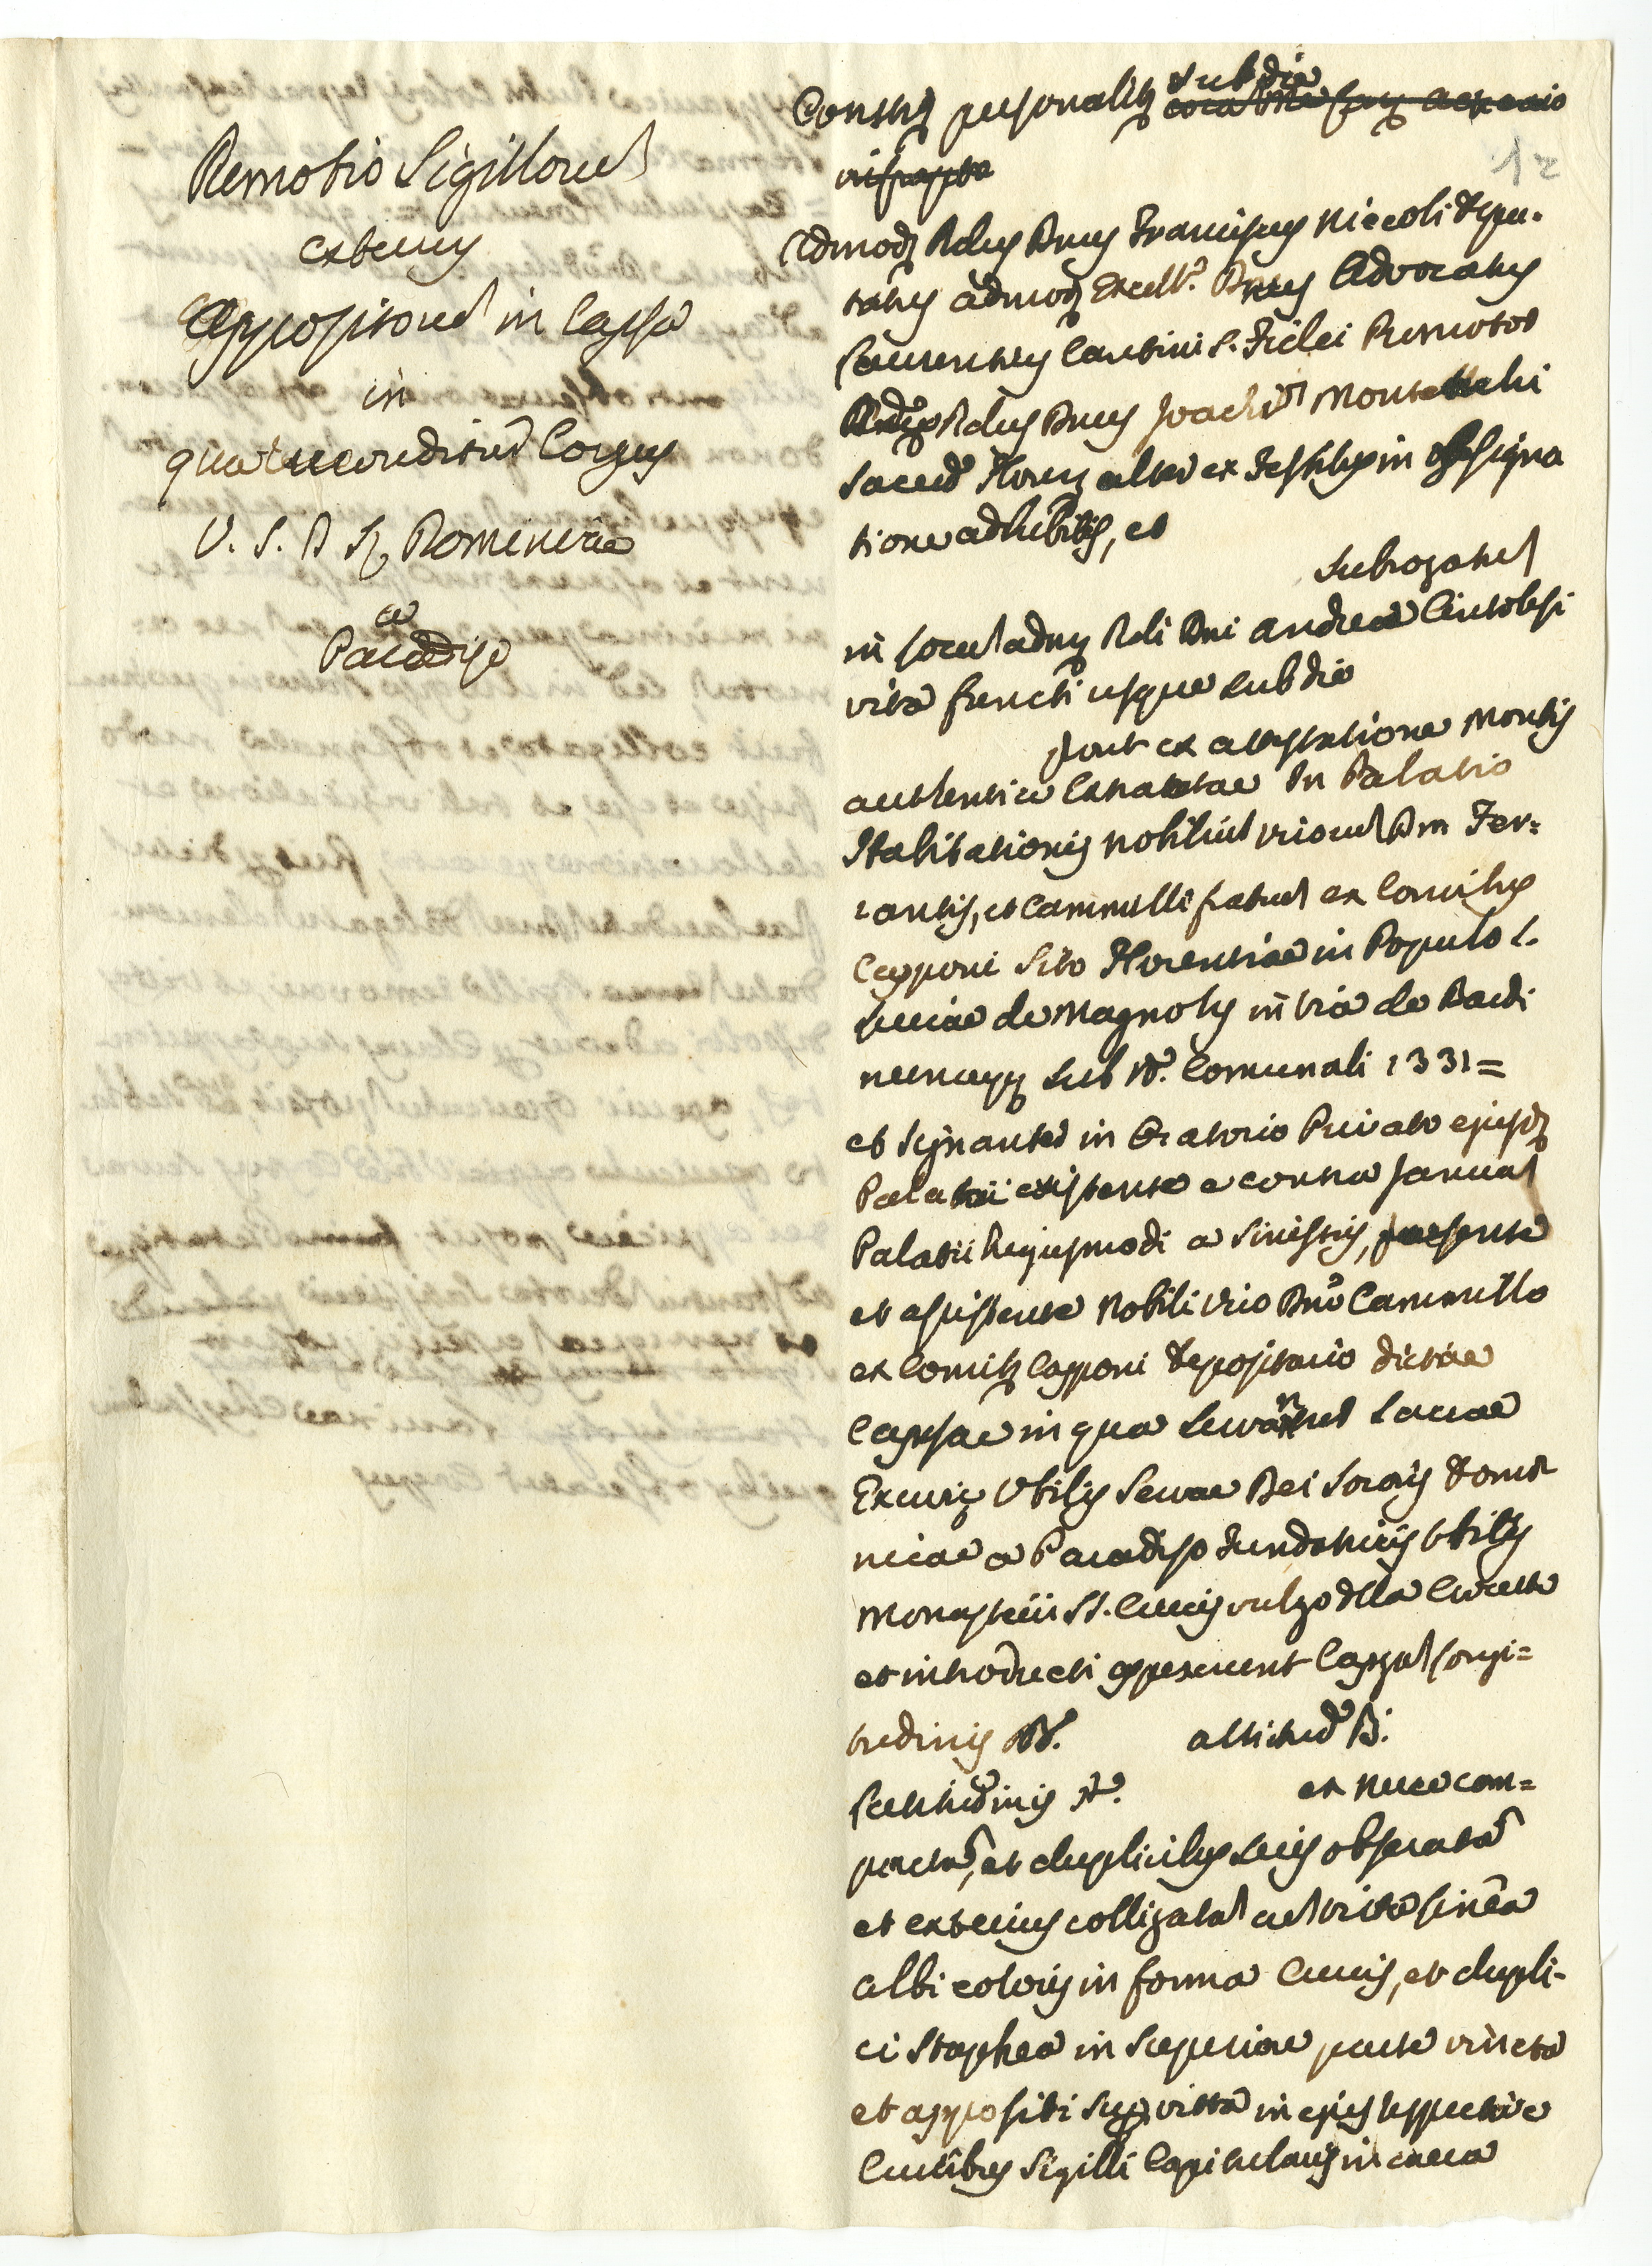 Remotio Sigillorum
exterius
Appositorum in Capsa
in
qua reconditum Corpus
V. S. D. Sr. Dominicae
a
Paradiso
12
Constis personaliter sub die
infrapto
Admod. Rdus Dnus Franciscus Niccoli Depu-
tatus admod. Excell. Dnus Advocatus
Laurentius Cantini S. Fidei Promotor
Rdus Dnus Joachim Montelatici
Sacerd. Floren. alter ex Testibus in assigna
tione adhibitis, et
subrogatus
in locum adm. Rdi Dni Andreae
vita functi usque sub die
prout ex attestatione Mortis
authentice extractae In Palatio
Habitationis Nobilium virorum DD. Fer-
rantis, et Cammilli fratrum ex Comitibus
Capponi sito Florentiae in Populo S.
Luciae de Magnolis in Via de Bardi
nuncup. sub N. Comunali 1331 =
et signanter in Oratorio Privato ejusd.
Palatii existente e contra Januam
Palatii hujusmodi a sinistris, praesente
et assistente Nobili Viro Dno Cammillo
ex Comitib. Capponi Depositario dictae
Capsae in qua servantur sacrae
Exuviae Vbilis Servae Dei Sororis Domi
nicae a Paradiso Fundatricis Vbilis
Monasterii SS. Crucis vulgo della Crocetta
et introducti apperuerunt Capsam longi=
tudinis B. altitud. B.
latitudinis B. ex nuce com=
pactam, et duplicibus seris obseratam
et exterius colligatam cum vitta linea
albi coloris in forma Crucis, et dupli-
ci Staphea in superiore parte vincta
et appositi sup. vitta in ejus respective
Crucibus Sigilli Capitularis in caera